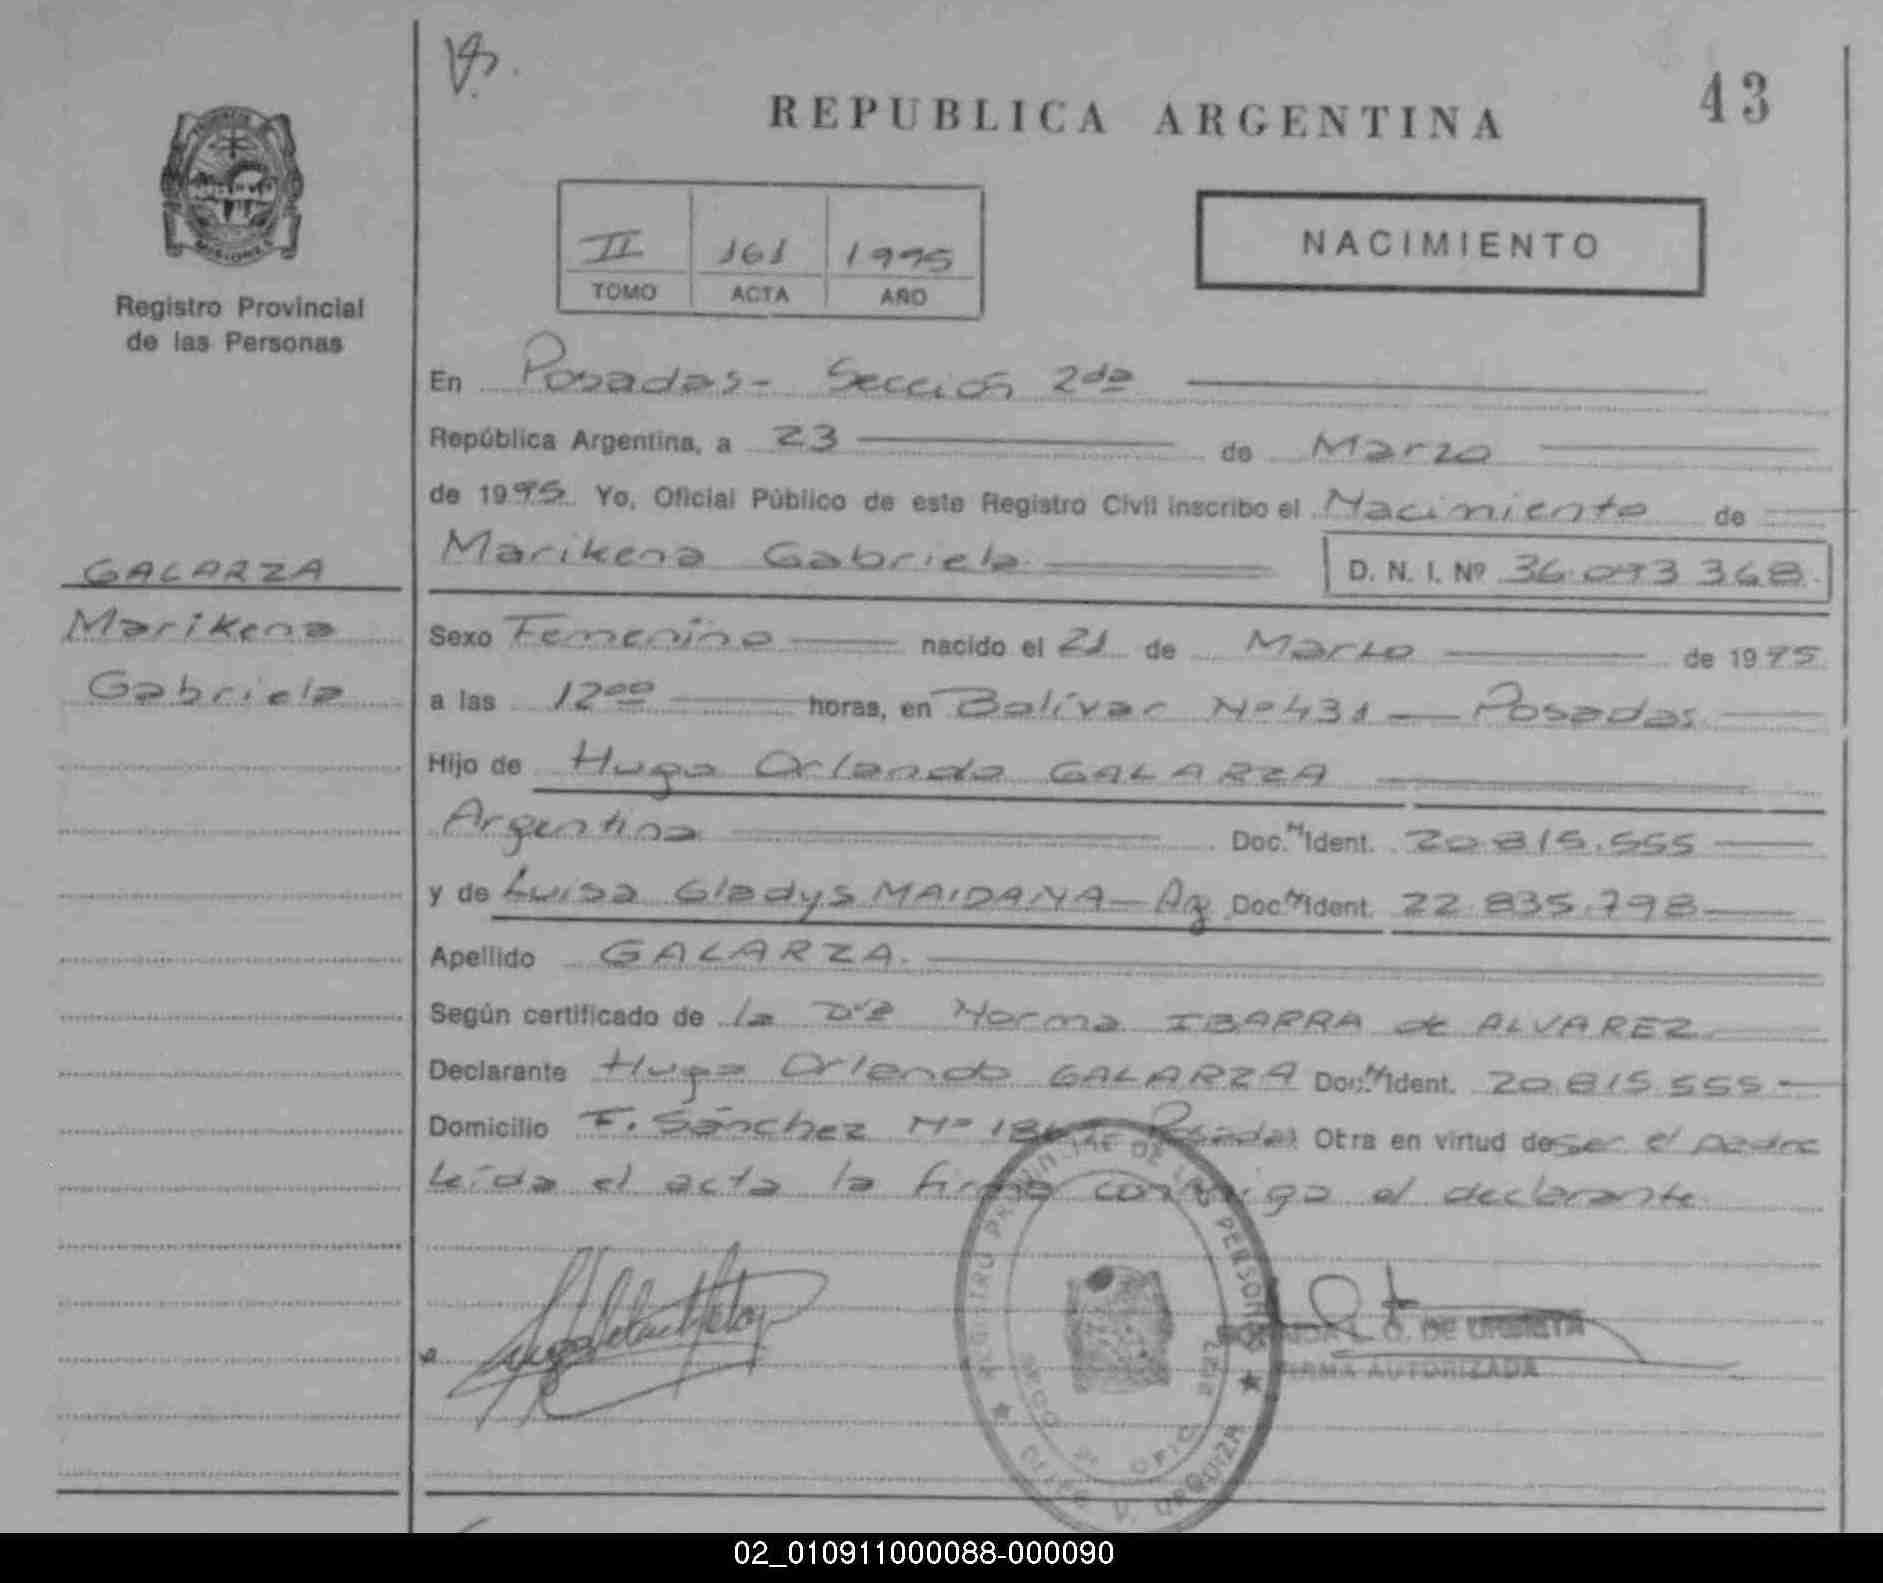 43
REPUBLICA ARGENTINA
MISIONES
Registro Provincial
de las Personas
II 161 1995
TOMO ACTA AÑO
NACIMIENTO
En Posadas- Sección 2da
República Argentina, a 23 de Marzo
de 1995 Yo, Oficial Público de este Registro Civil inscribo el Nacimiento de
Marikena Gabriela D. N. I. Nº 36.093 368
GALARZA
Marikena
Gabriela
Sexo Femenino nacido el 21 de Marzo de 1995
a las 12 00 horas, en Bolívar Nº 431 — Posadas
Hijo de Hugo Orlando GALARZA
Argentina Doc. M Ident. 20.815.555
y de Luisa Gladys MAIDANA — Ag Doc. M Ident. 22.835.798
Apellido GALARZA.
Según certificado de la Dra Norma IBARRA de ALVAREZ
Declarante Hugo Orlando GALARZA Doc. M Ident. 20.815.555
Domicilio F. Sánchez Nº Posadas Otra en virtud de ser el padre
Leída el acta la firma conmigo el declarante
REGISTRO PROVINCIAL DE LAS PERSONAS
URQUIZA
L. O. DE
FIRMA AUTORIZADA
02_010911000088-000090